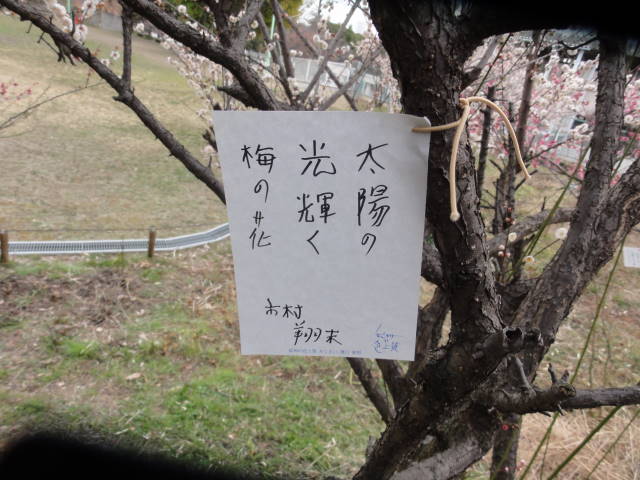 太陽の
光輝く
梅の花
市村
翔末